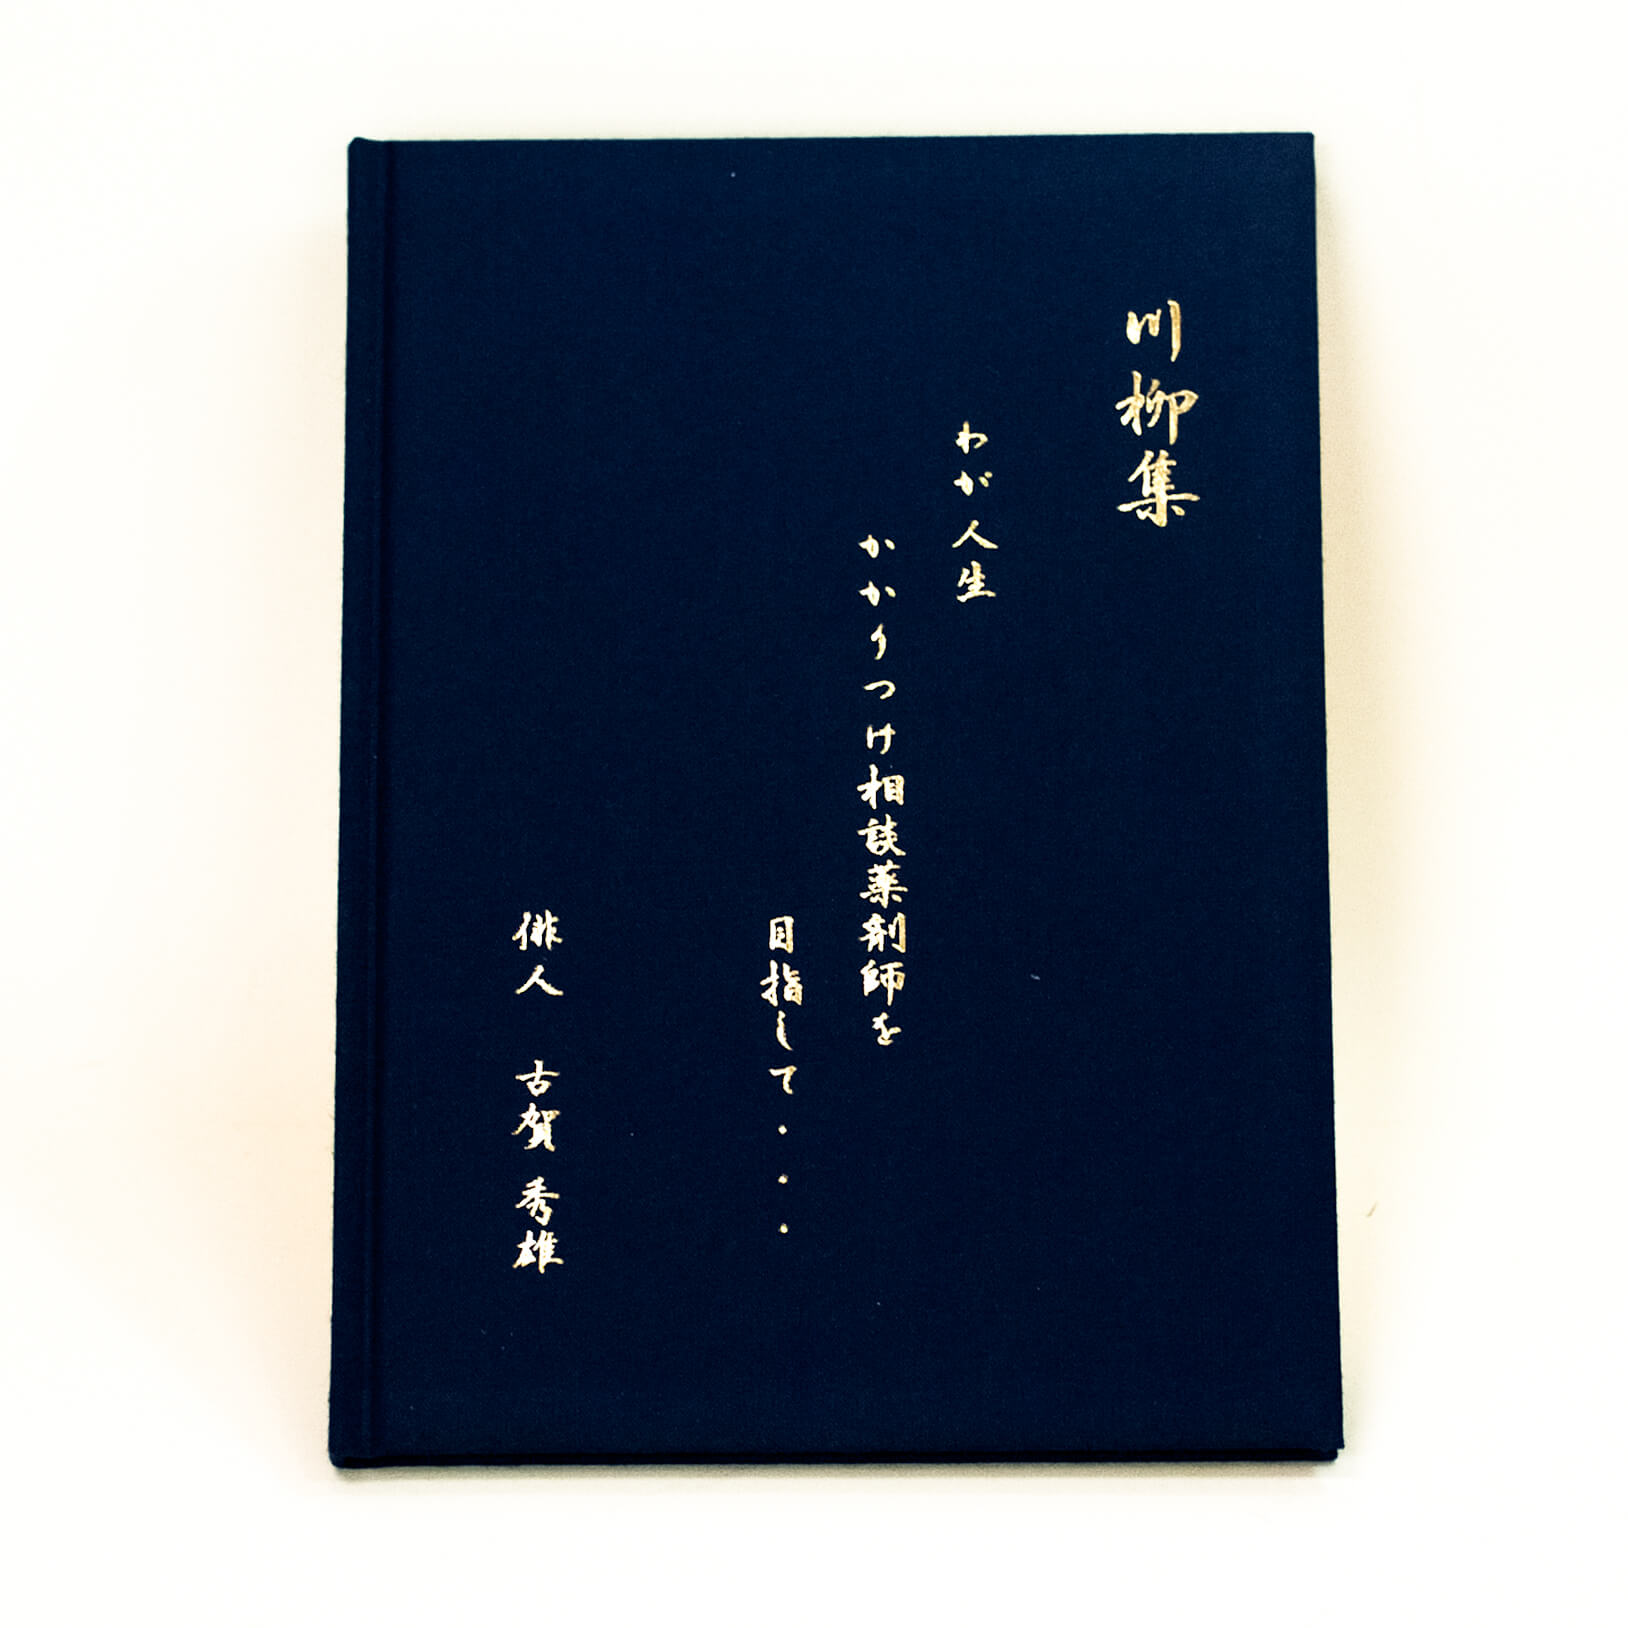 川柳集
わが人生
かかりつけ相談薬剤師を
目指して・・・
俳人 古賀秀雄